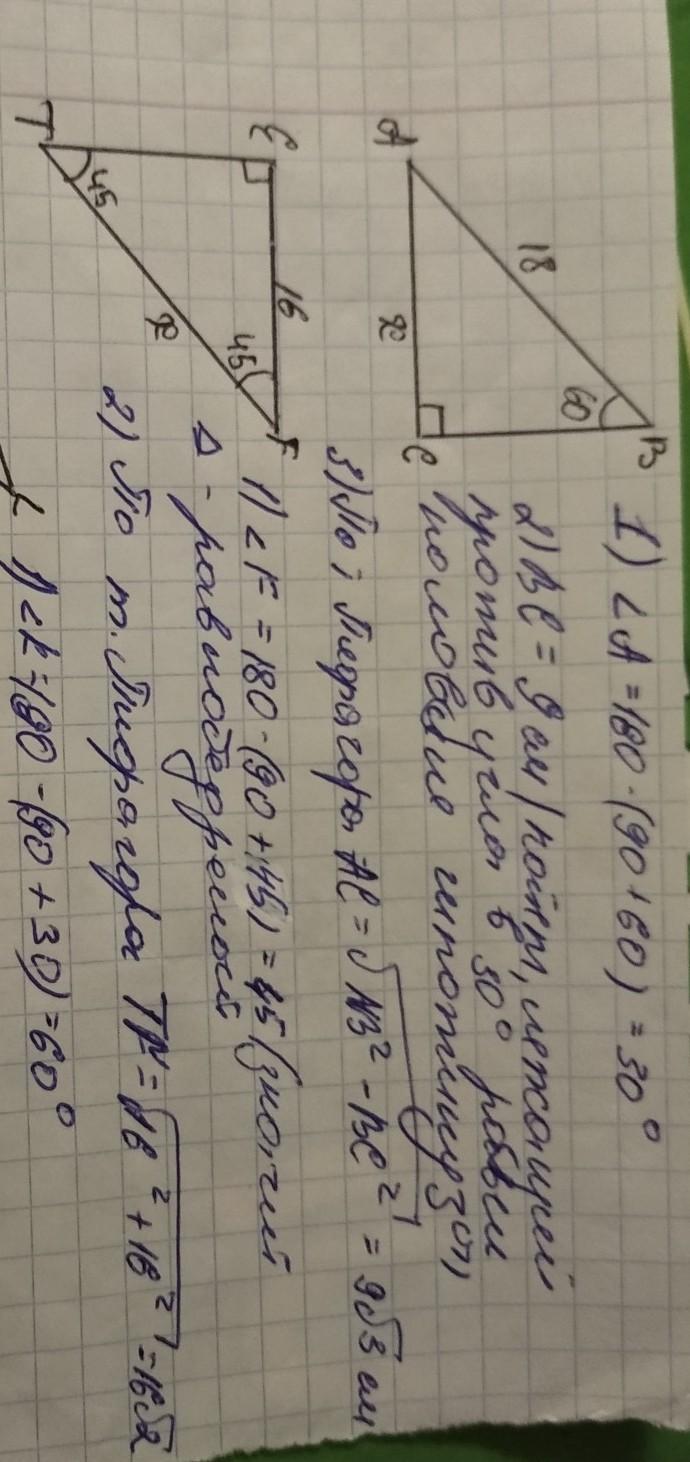 A
18
60
B
x
C
1) <A = 180 - (90 + 60) = 30°
2) BC = 9 см (катет, лежащий
против угла в 30° равен
половине гипотенузы)
3) По т Пифагора AC = √AB² - BC² = 9√3 см
T
45
E
16
45
F
x
1) <F = 180 - (90 + 45) = 45 (значит
Δ - равнобедренный
2) По т. Пифагора TF = √16² + 16² = 16√2
1) <K = 180 - (90 + 30) = 60°